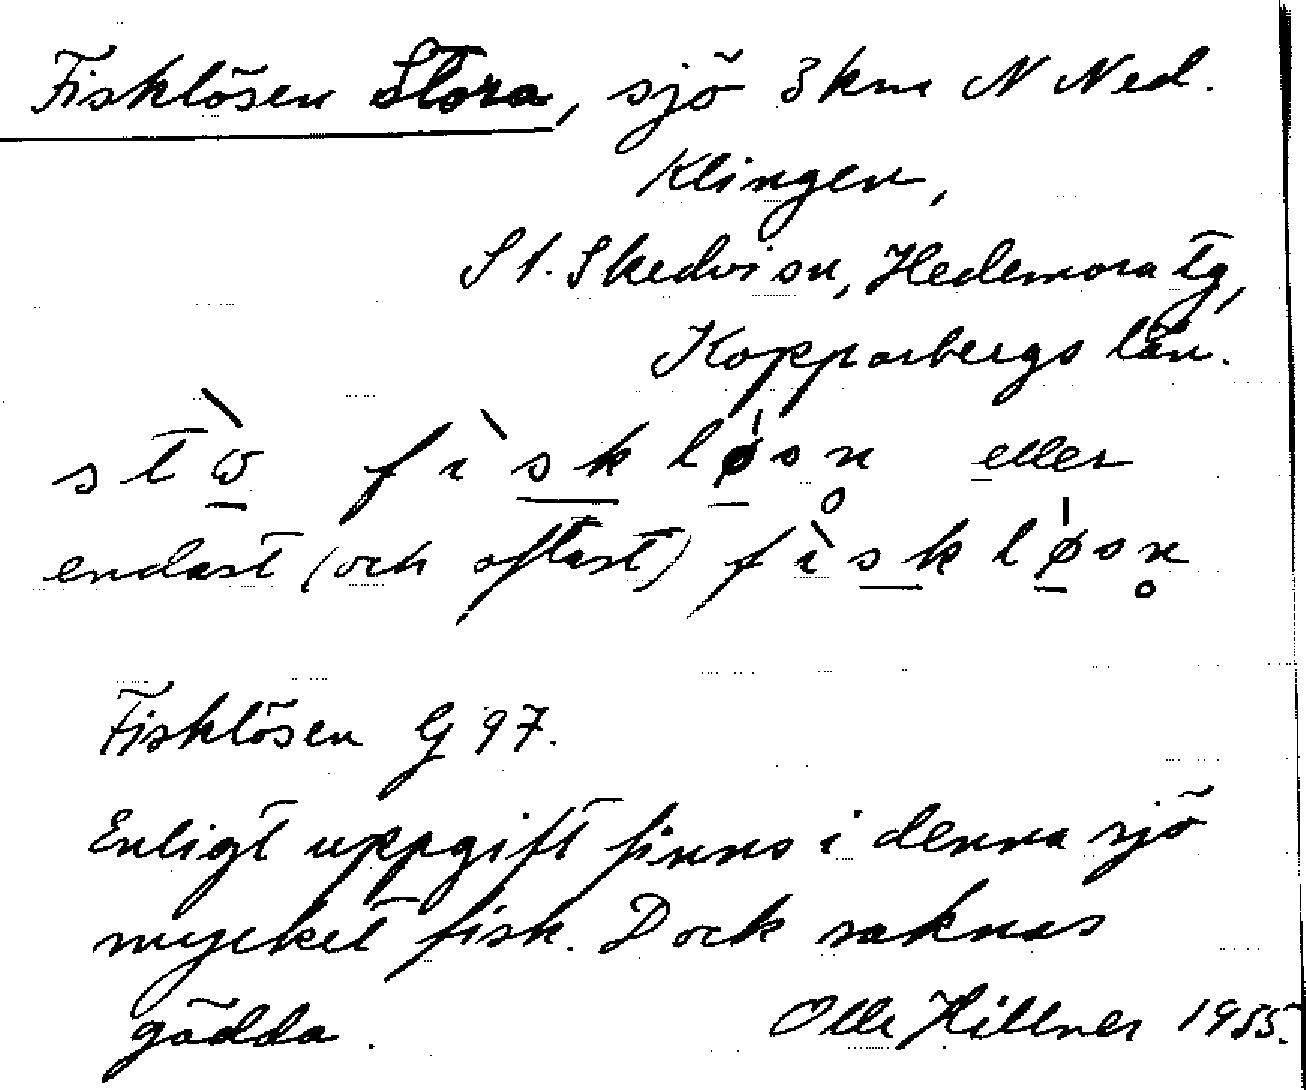 Fisklösen Stora, sjö 3 km N Ned.
Klingen,
St. Skedvi sn, Hedemora tg,
Kopparbergs län.
stɷ̀ fìsklø̍sn̥ eller
endast (och oftast) fìsklø̍sn̥
Fisklösen G 97.
Enligt uppgift finns i denna sjö
mycket fisk. Dock saknas
gädda. Olle Hillner 1955.